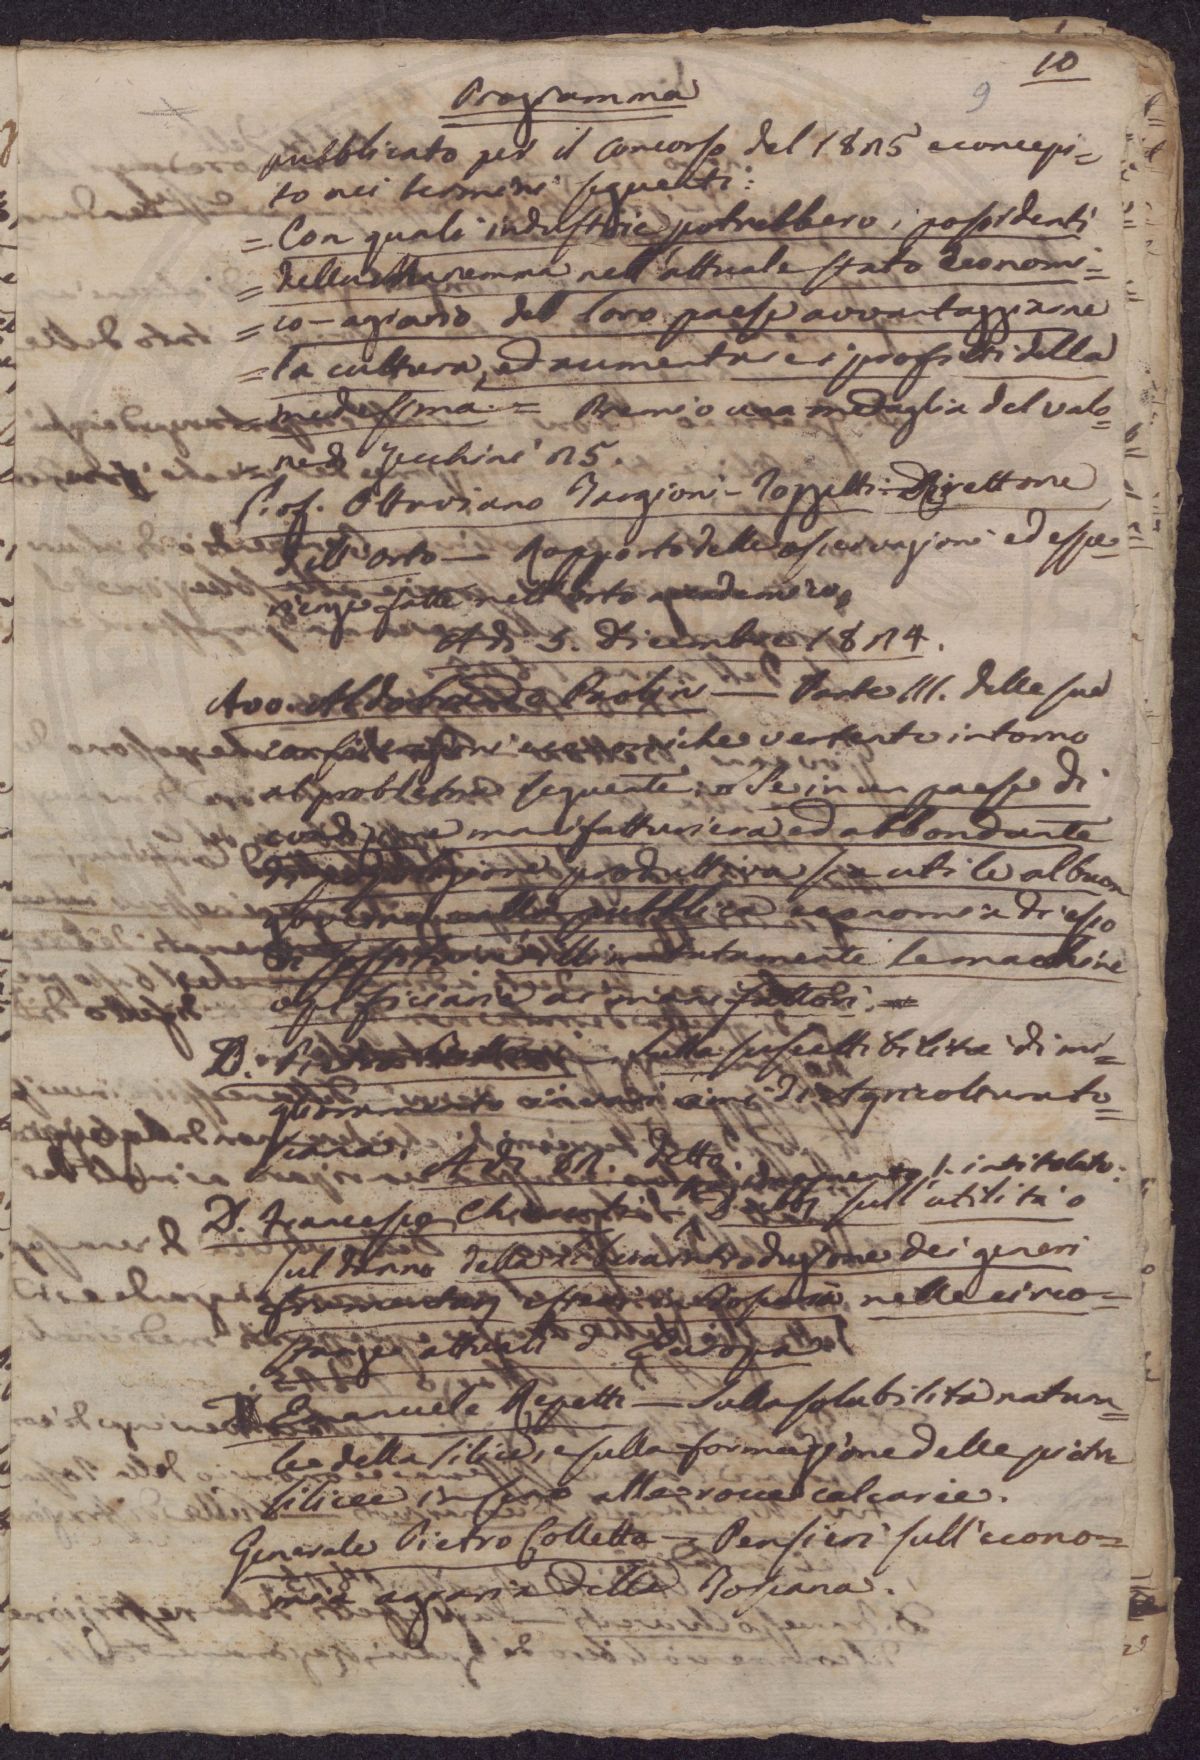 10
9
Programma
pubblicato per il concorso del 1825 e concepi=
to nei termini seguenti:
= Con quali industrie potrebbero i possidenti
= della Maremma nell'attuale stato economi=
= co-agrario del loro paese avvantaggiarne
= la cultura, ed aumentare i profitti della
= medesima. = Premio una medaglia del valo=
re di Zecchini 25.
Prof. Ottaviano Targioni-Tozzetti Direttore
dell'orto — Rapporto delle osservazioni ed espe=
rienze fatte nell'orto accademico.
A dì 5. Dicembre 1824.
Avv. Aldobrando Paolini — Parte III. delle sue
considerazioni economiche vertente intorno
al problema seguente: Se in un paese di
condizione manifatturiera ed abbondante
di popolazione produttiva sia utile al buon
governo, alla pubblica economia di esso
di sostituire illimitatamente le macchine
opificiarie ai manifattori. =
D. — Sulla suscettibilità di mi=
glioramento di Agricoltura to=
scana.
A dì 12. detto.
ragionamento intitolato:
D. Francesco Chiarenti — Dubbj sull'utilità o
sul danno della libera introduzione dei generi
frumentarj esteri in Toscana, nelle circo=
stanze attuali d'Europa
D. Emanuele Repetti — Sulla solubilità natura=
le della silice, e sulla formazione delle pietre
silicee in seno alle rocce calcarie.
Generale Pietro Colletta — Pensieri sull'econo=
mia agraria della Toscana.